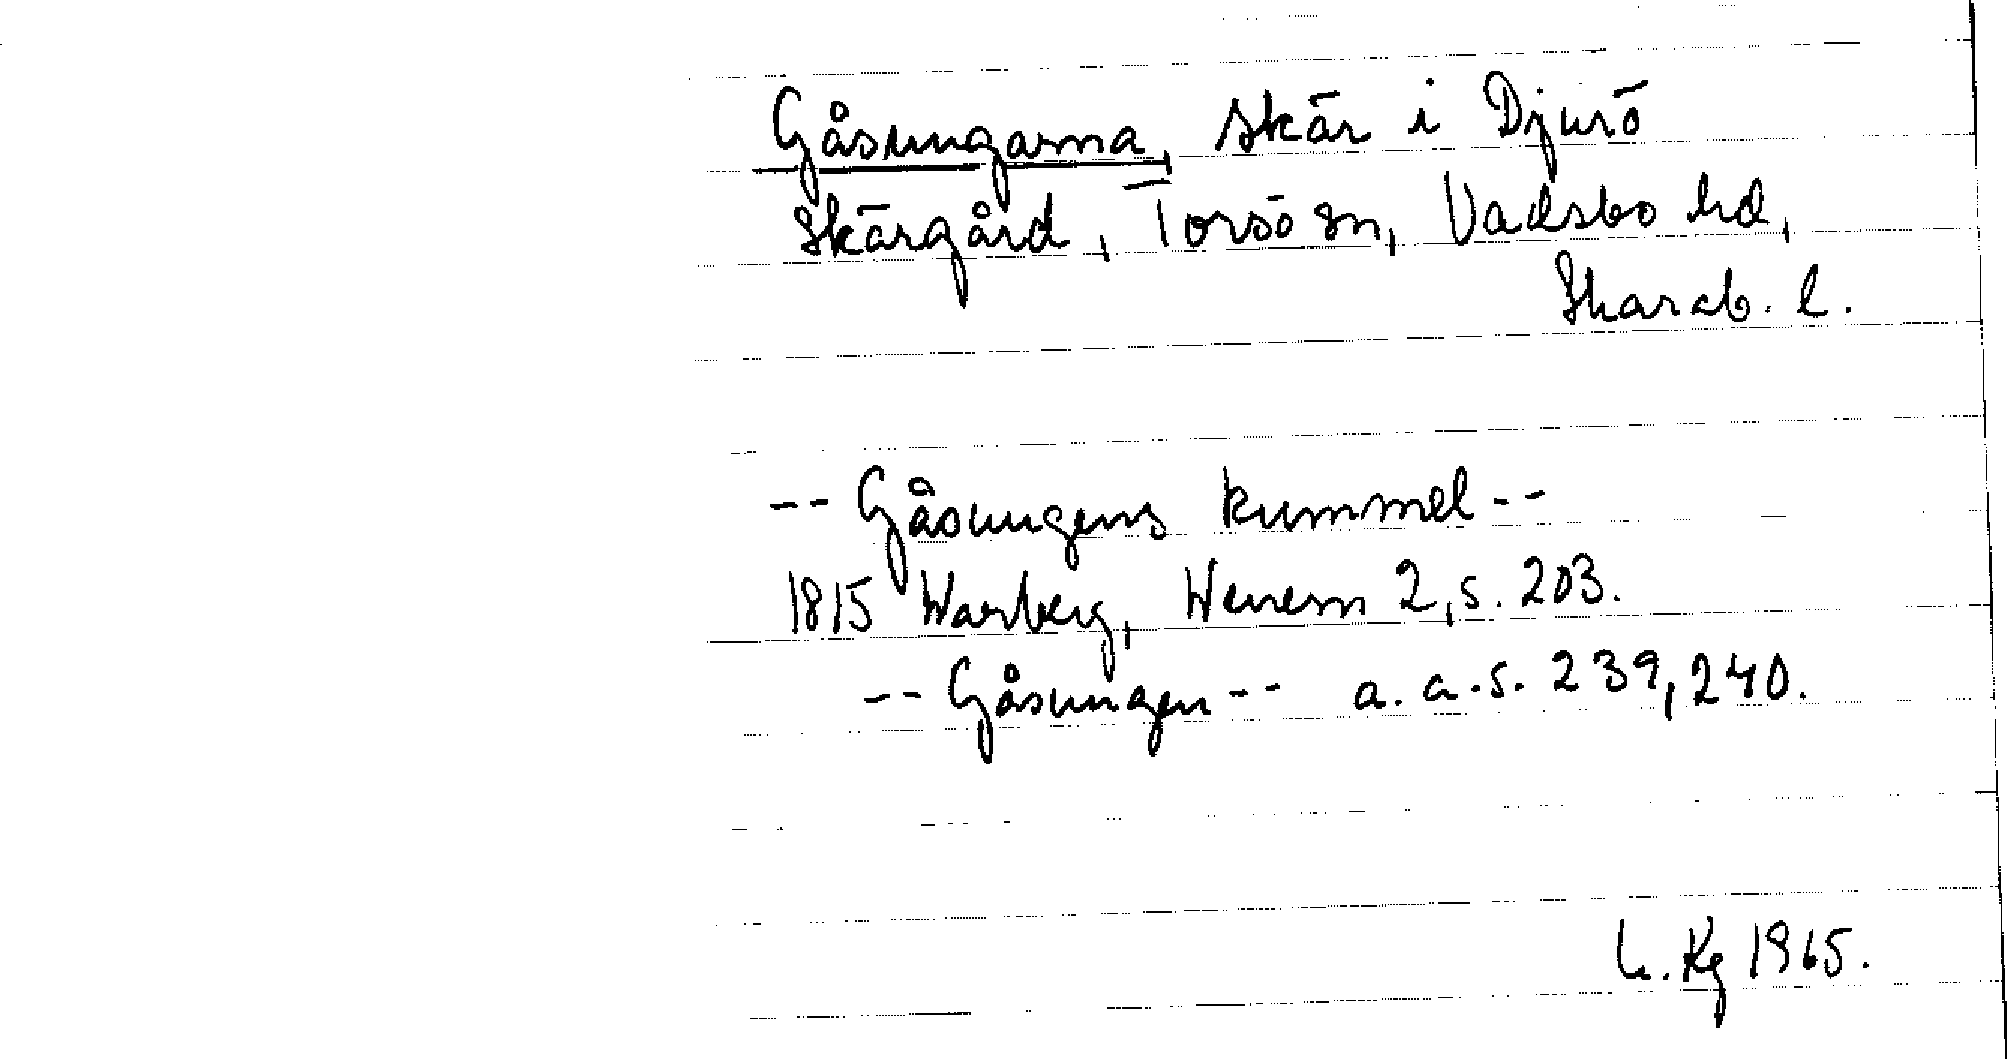 Gåsungarna, skär i Djurö
skärgård, Torsö sn, Vadsbo hd,
Skarab. l.
-- Gåsungens kummel --
1815 Warberg, Wenern 2, s. 203.
-- Gåsungen -- a. a. s. 239, 240.
Kg 1965.